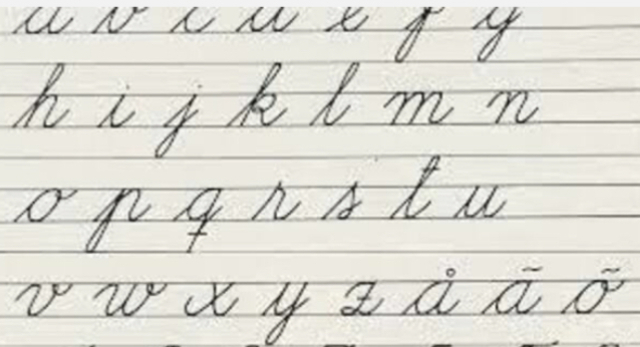 a b c d e f g
h i j k l m n
o p q r s t u
v w x y z å ä ö